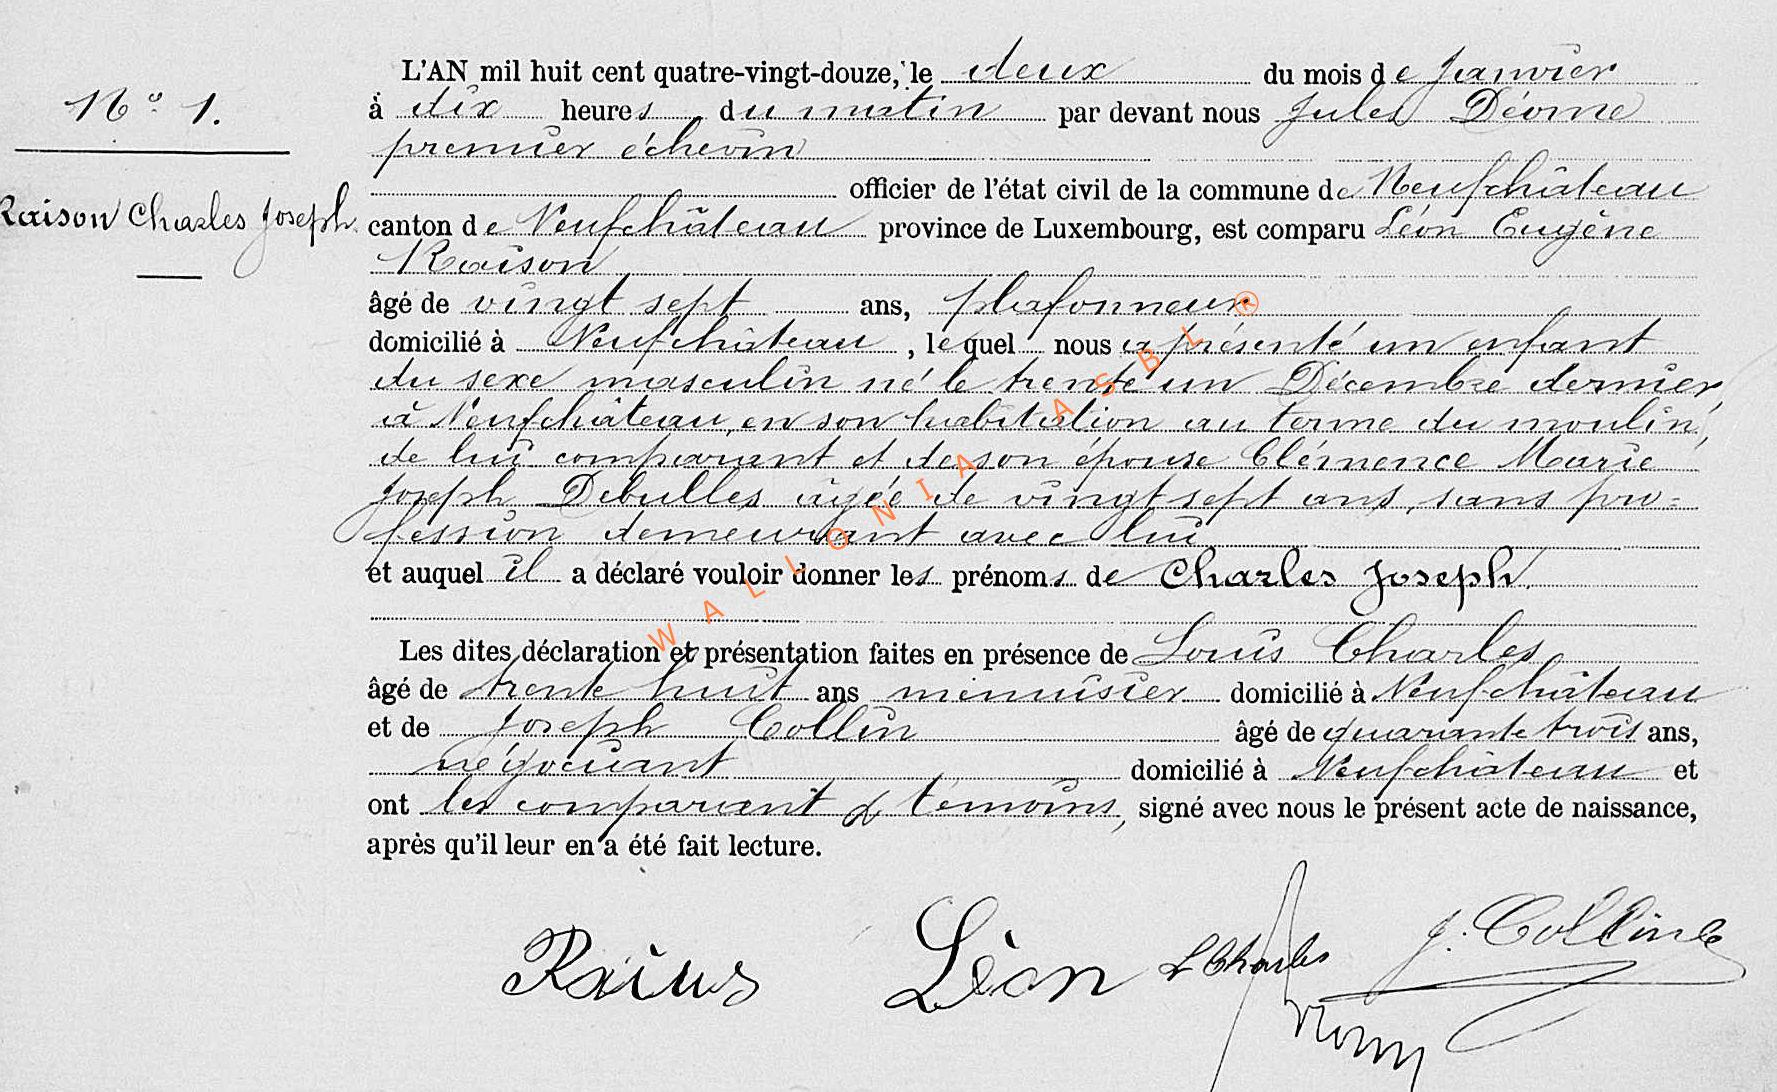 N° 1.
Raison Charles Joseph.
L'AN mil huit cent quatre-vingt-douze, le deux du mois de Janvier
à dix heures du matin par devant nous Jules Déome
premier échevin
officier de l'état civil de la commune de Neufchâteau
canton de Neufchâteau province de Luxembourg, est comparu Léon Eugène
Raison
âgé de vingt sept ans, plafonneur
domicilié à Neufchâteau, lequel nous a présenté un enfant
du sexe masculin né le trente un Décembre dernier,
à Neufchâteau, en son habitation au terme du moulin,
de lui comparant et de son épouse Clémence Marie
Joseph Debulles âgée de vingt sept ans, sans pro=
fession demeurant avec lui
et auquel il a déclaré vouloir donner les prénoms de Charles Joseph.
Les dites déclaration et présentation faites en présence de Louis Charles
âgé de trente huit ans menuisier domicilié à Neufchâteau
et de Joseph Collin âgé de quarante trois ans,
négociant domicilié à Neufchâteau et
ont les comparant & témoins, signé avec nous le présent acte de naissance,
après qu'il leur en a été fait lecture.
Léon L Charles J. Collin
WALLONIA ASBL ®